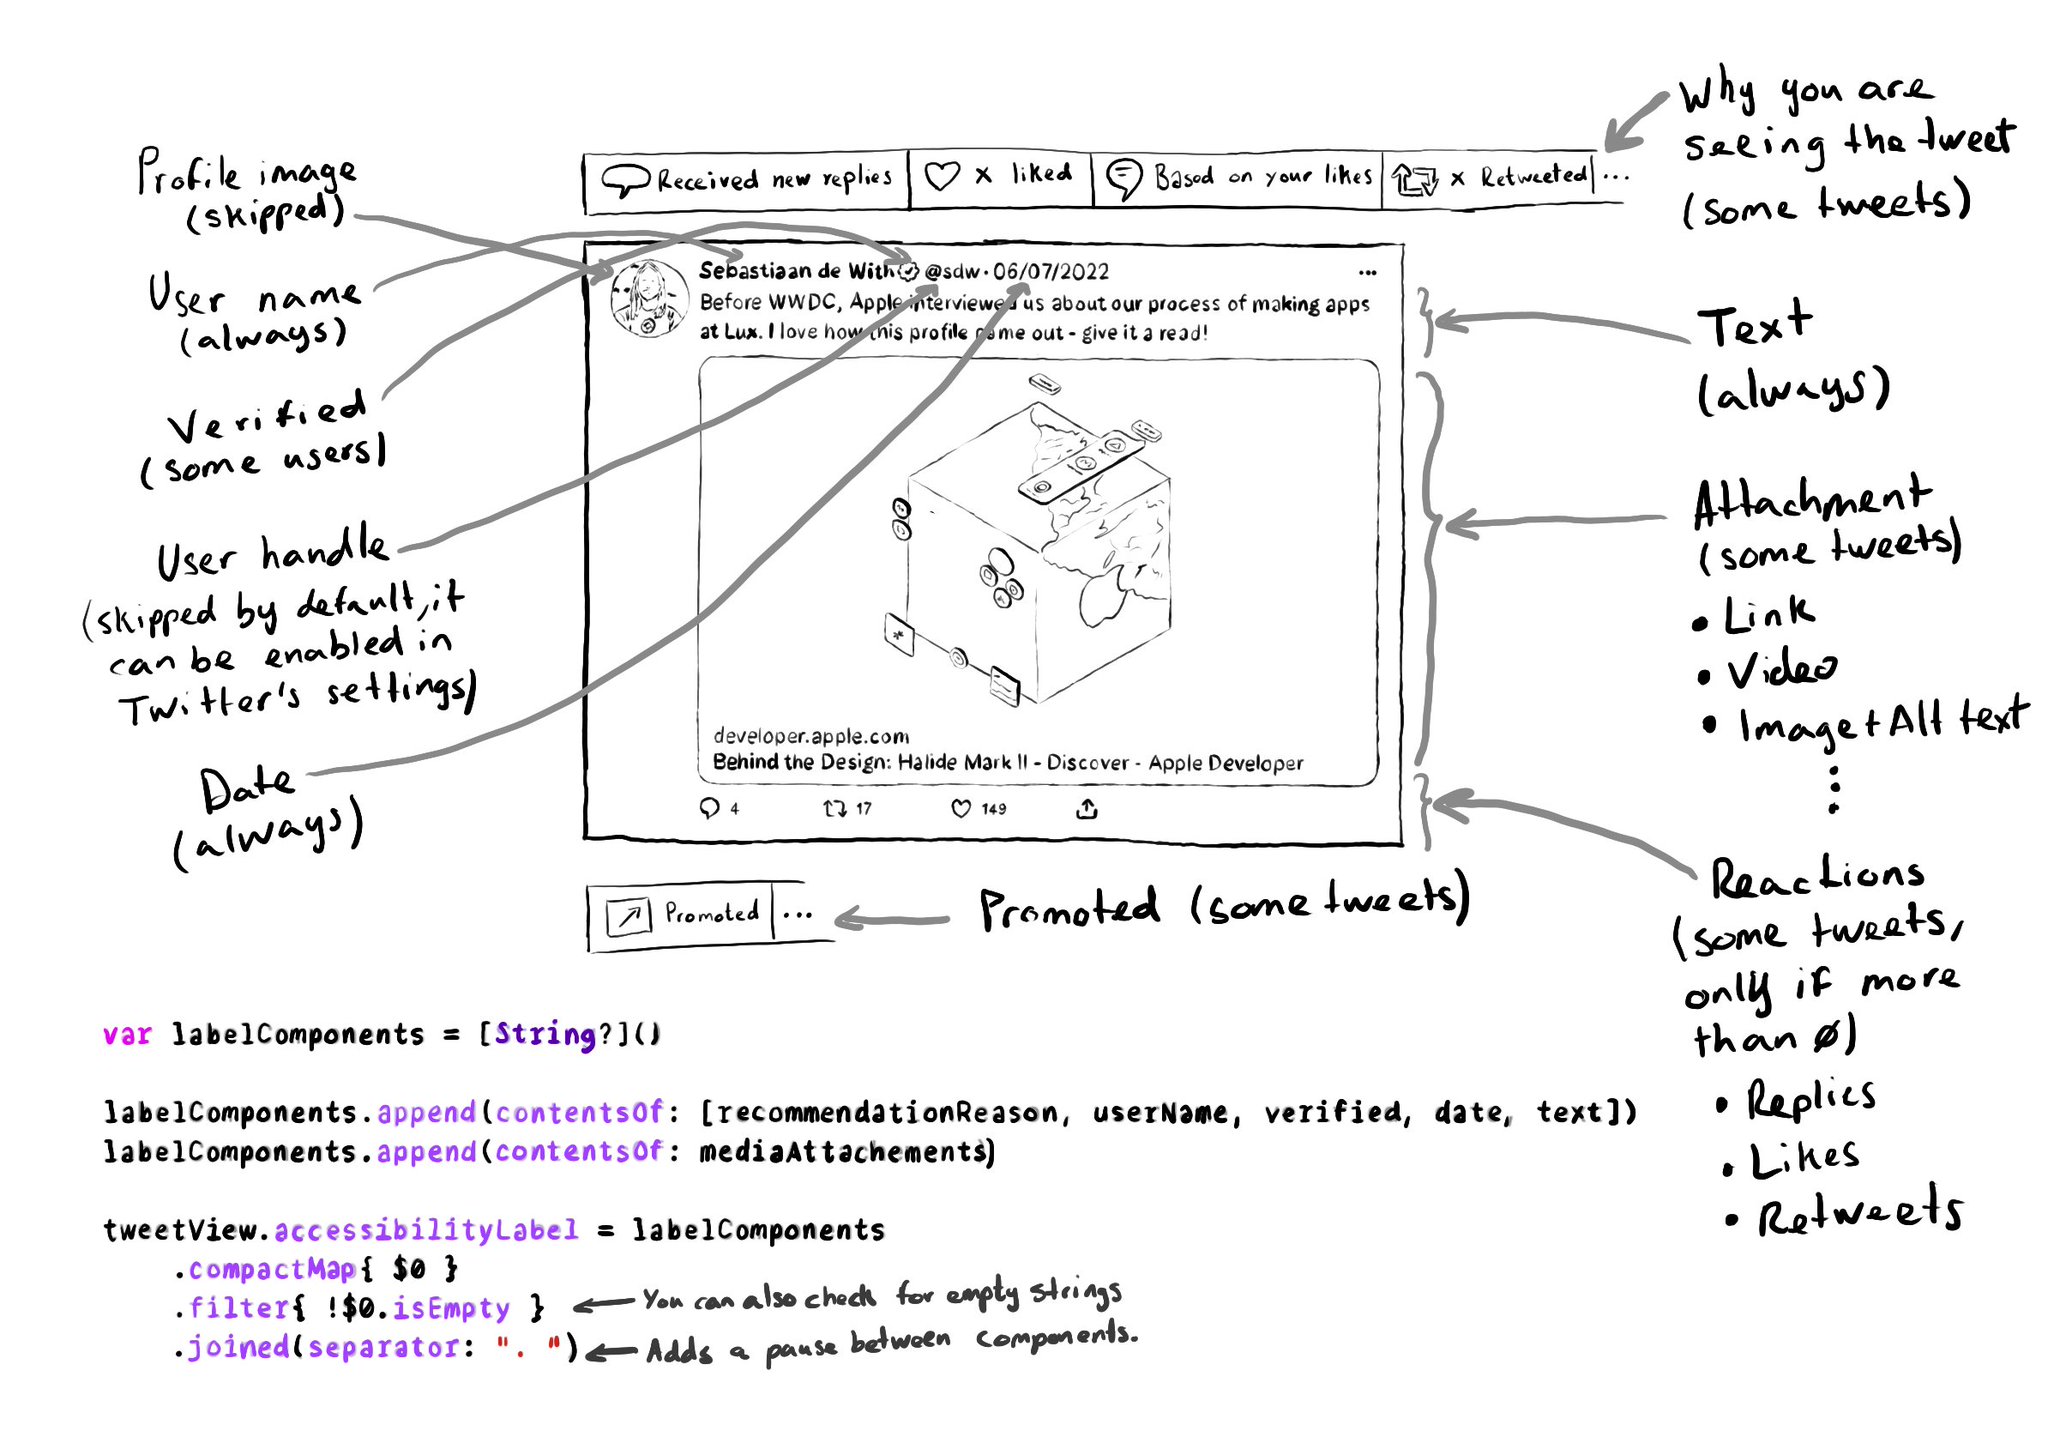 Why you are
seeing the tweet
(some tweets)
Received new replies
x liked
Based on your likes
x Retweeted
...
Profile image
(skipped)
User name
(always)
Verified
(some users)
User handle
(skipped by default, it
can be enabled in
Twitter's settings)
Date
(always)
Sebastiaan de With @sdw · 06/07/2022
...
Before WWDC, Apple interviewed us about our process of making apps
at Lux. I love how this profile came out - give it a read!
developer.apple.com
Behind the Design: Halide Mark II - Discover - Apple Developer
4
17
149
Promoted
...
Promoted (some tweets)
Text
(always)
Attachment
(some tweets)
• Link
• Video
• Image + Alt text
Reactions
(some tweets,
only if more
than 0)
• Replies
• Likes
• Retweets
var labelComponents = [String?]()
labelComponents.append(contentsOf: [recommendationReason, userName, verified, date, text])
labelComponents.append(contentsOf: mediaAttachements)
tweetView.accessibilityLabel = labelComponents
.compactMap{ $0 }
.filter{ !$0.isEmpty } ← You can also check for empty strings
.joined(separator: ". ") ← Adds a pause between components.